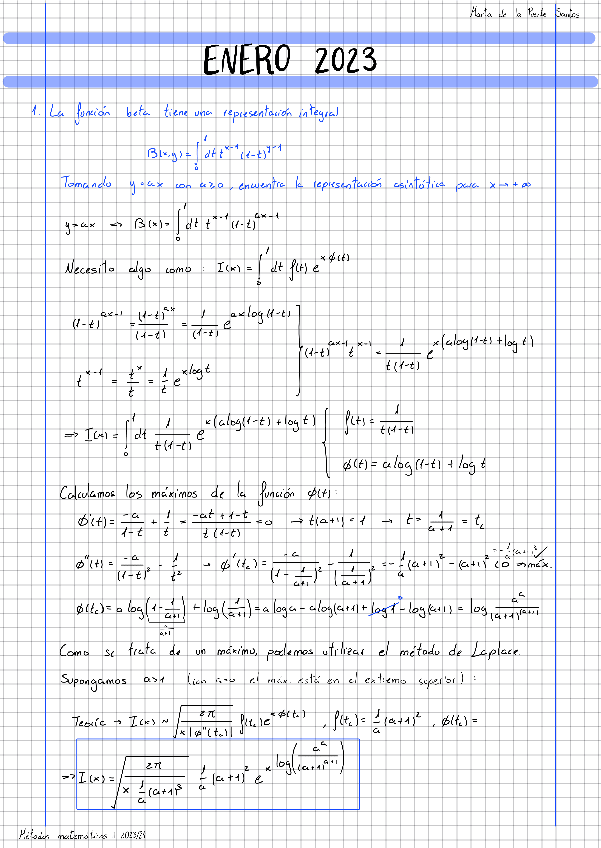 Marta de la Puente Santos
ENERO 2023
1. La función beta tiene una representación integral
B(x,y) = ∫₀¹ dt t^{x-1} (1-t)^{y-1}
Tomando y=ax con a≥0, encuentra la representación asintótica para x → +∞
y=ax ⇒ B(x) = ∫₀¹ dt t^{x-1} (1-t)^{ax-1}
Necesito algo como : I(x) = ∫₀¹ dt f(t) e^{xϕ(t)}
(1-t)^{ax-1} = (1-t)^{ax}/(1-t) = 1/(1-t) e^{ax log(1-t)}
t^{x-1} = t^x/t = 1/t e^{x log t}
(1-t)^{ax-1} t^{x-1} = 1/(t(1-t)) e^{x(a log(1-t) + log t)}
⇒ I(x) = ∫₀¹ dt 1/(t(1-t)) e^{x(a log(1-t) + log t)}
f(t) = 1/(t(1-t))
ϕ(t) = a log(1-t) + log t
Calculamos los máximos de la función ϕ(t):
ϕ'(t) = -a/(1-t) + 1/t = (-at+1-t)/(t(1-t)) = 0 → t(a+1) = 1 → t = 1/(a+1) = t_c
ϕ''(t) = -a/(1-t)² - 1/t² → ϕ''(t_c) = -a/(1 - 1/(a+1))² - 1/(1/(a+1))² = -1/a (a+1)² - (a+1)² < 0 ⇒ máx.
ϕ(t_c) = a log(1 - 1/(a+1)) + log(1/(a+1)) = a log a - a log(a+1) + log 1 - log(a+1) = log a^a/(a+1)^{(a+1)}
Como se trata de un máximo, podemos utilizar el método de Laplace.
Supongamos a>1 (con a=0 el máx. está en el extremo superior) :
Teoría → I(x) ~ √(2π/(x|ϕ''(t_c)|)) f(t_c) e^{xϕ(t_c)} , f(t_c) = 1/a (a+1)² , ϕ(t_c) =
⇒ I(x) = √(2π/(x 1/a (a+1)³)) 1/a (a+1)² e^{x log(a^a/(a+1)^{a+1})}
Métodos matemáticos | 2023/24